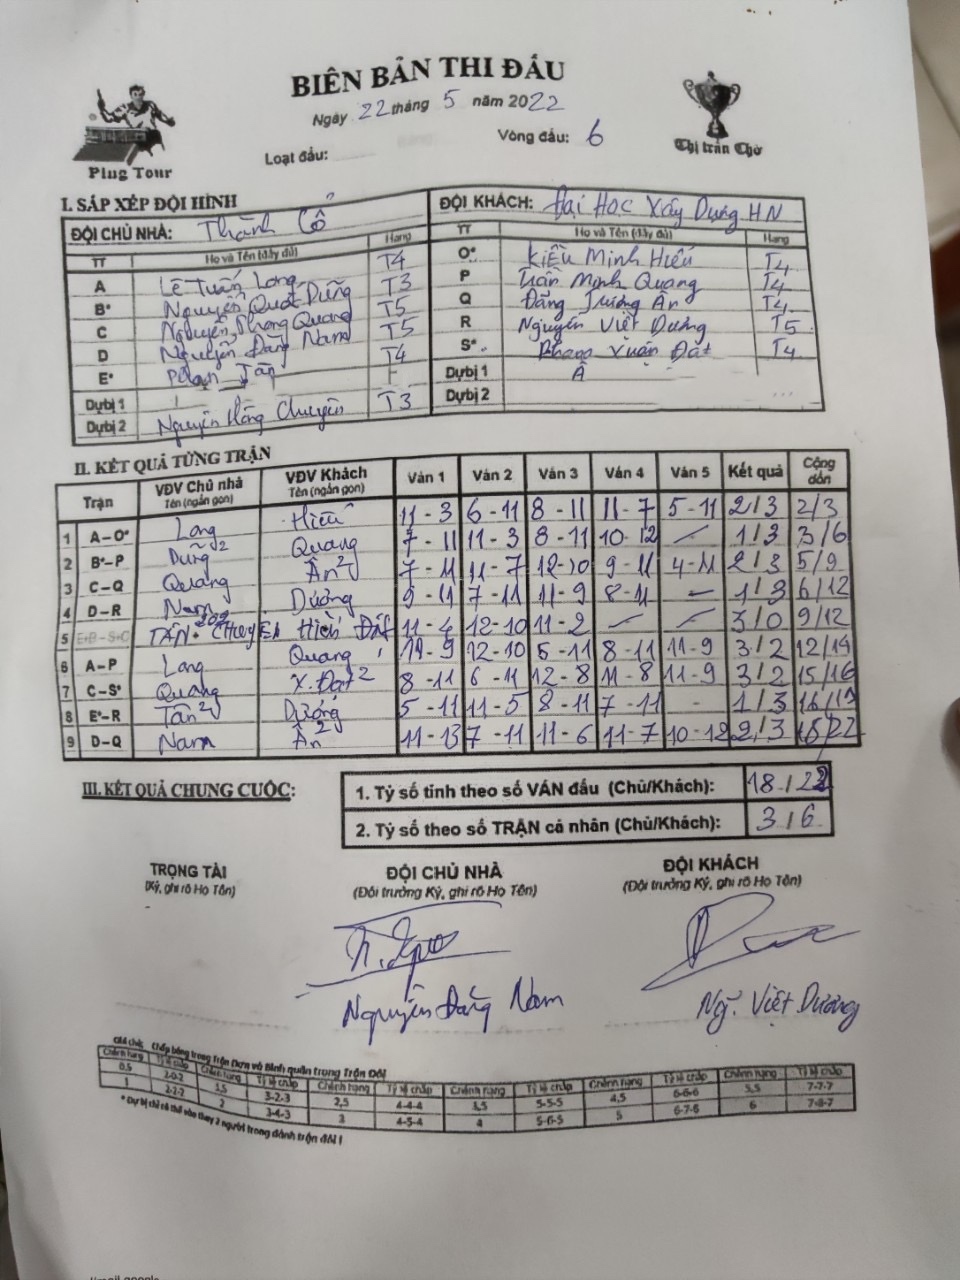 BIÊN BẢN THI ĐẤU
Ngày 22 tháng 5 năm 2022
Plug Tour
Loạt đấu:
Vòng đấu: 6
Thị trấn Chờ
I. SẮP XẾP ĐỘI HÌNH
ĐỘI CHỦ NHÀ: Thành Cổ
ĐỘI KHÁCH: Đại Học Xây Dựng HN
TT Họ và Tên (đầy đủ) Hạng
TT Họ và Tên (đầy đủ) Hạng
A Lê Tuấn Long T4
O* Kiều Minh Hiếu T4
B* Nguyễn Quốc Dũng T3
P Trần Minh Quang T4
C Nguyễn Phong Quang T5
Q Đăng Trương Ân T4
D Nguyễn Đăng Nam T5
R Nguyễn Việt Dương T5
E* Phan Tân T4
S* Phạm Xuân Đạt T4
Dự bị 1
Dự bị 1
Dự bị 2 Nguyễn Hồng Chuyên T3
Dự bị 2
II. KẾT QUẢ TỪNG TRẬN
Trận VĐV Chủ nhà Tên (ngắn gọn) VĐV Khách Tên (ngắn gọn) Ván 1 Ván 2 Ván 3 Ván 4 Ván 5 Kết quả Cộng dồn
1 A – O* Long Hiếu 11 - 3 6 - 11 8 - 11 11 - 7 5 - 11 2 / 3 2/3
2 B* – P Dũng 2 Quang 7 - 11 11 - 3 8 - 11 10 - 12 – 1 / 3 3/6
3 C – Q Quang Ân 2 7 - 11 11 - 7 12 - 10 9 - 11 4 - 11 2 / 3 5/9
4 D – R Nam Dương 9 - 11 7 - 11 11 - 9 8 - 11 – 1 / 3 6/12
5 E+B – S+O TÂN + Chuyên Hiếu Đạt 11 - 4 12 - 10 11 - 2 – – 3 / 0 9/12
6 A – P Long Quang 11 - 9 12 - 10 5 - 11 8 - 11 11 - 9 3 / 2 12/14
7 C – S* Quang X. Đạt 2 8 - 11 6 - 11 12 - 8 11 - 8 11 - 9 3 / 2 15/16
8 E* – R Tân 2 Dương 5 - 11 11 - 5 8 - 11 7 - 11 - 1 / 3 16/19
9 D – Q Nam Ân 2 11 - 13 7 - 11 11 - 6 11 - 7 10 - 12 2 / 3 18/22
III. KẾT QUẢ CHUNG CUỘC:
1. Tỷ số tính theo số VÁN đấu (Chủ/Khách): 18 / 22
2. Tỷ số theo số TRẬN cá nhân (Chủ/Khách): 3 / 6
TRỌNG TÀI
(Ký, ghi rõ Họ Tên)
ĐỘI CHỦ NHÀ
(Đội trưởng Ký, ghi rõ Họ Tên)
ĐỘI KHÁCH
(Đội trưởng Ký, ghi rõ Họ Tên)
Nguyễn Đăng Nam
Ng. Việt Dương
Ghi chú: Chấp bóng trong Trận Đơn và Bình quân trong Trận Đôi
Chênh hạng Tỷ lệ chấp Chênh hạng Tỷ lệ chấp Chênh hạng Tỷ lệ chấp Chênh hạng Tỷ lệ chấp Chênh hạng Tỷ lệ chấp Chênh hạng Tỷ lệ chấp
0,5 2-0-2 1,5 3-2-3 2,5 4-4-4 3,5 5-5-5 4,5 6-6-6 5,5 7-7-7
1 2-2-2 2 3-4-3 3 4-5-4 4 5-6-5 5 6-7-6 6 7-8-7
* Dự bị chỉ có thể vào thay 2 người trong đánh trận đôi !